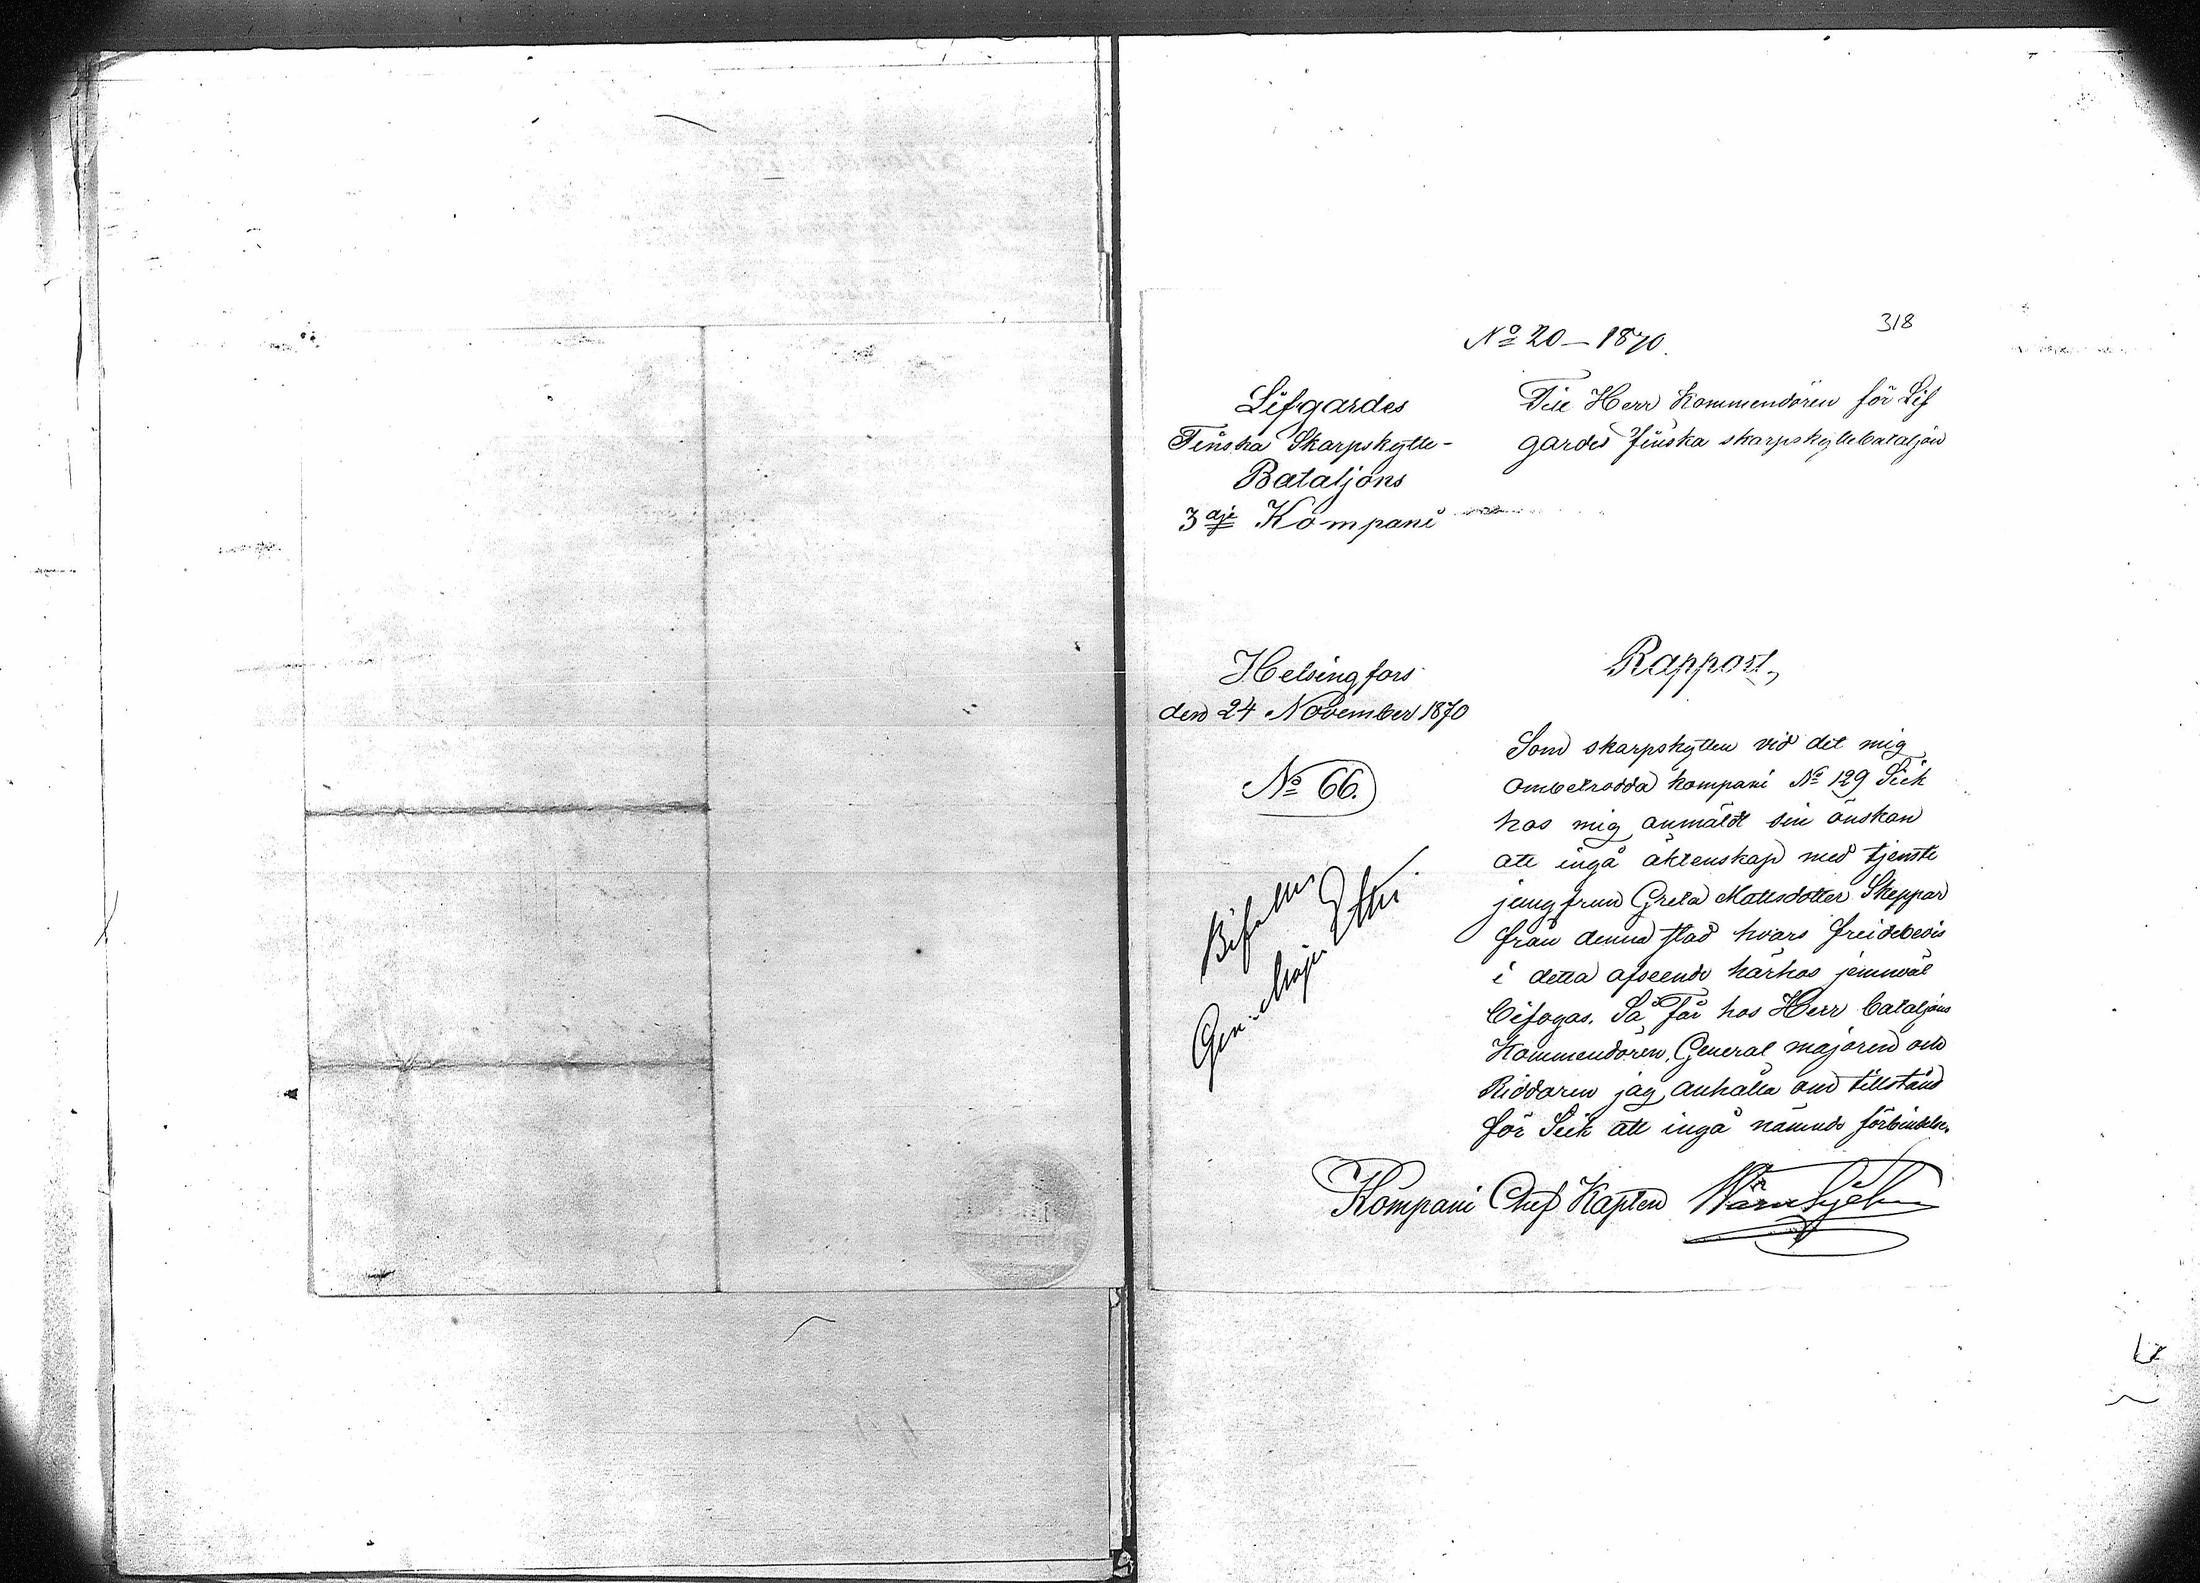 318
No 20 – 1870.
Lifgardes
Finska Skarpskytte-
Bataljons
3dje Kompani
Till Herr Kommendören för Lif
gardes finska skarpskyttebataljon
Helsingfors
den 24 November 1870
No 66.
Bifalles
Gen: Major
Rapport,
Som skarpskytten vid det mig
ombetrodda kompani No 129 Siek
hos mig anmäldt sin önskan
att ingå äktenskap med tjenste
jungfrun Greta Mattsdotter Skeppar
från denna stad hvars frejdebevis
i detta afseende härhos jemnväl
bifogas. Så får hos Herr bataljons
Kommendören, General majoren och
Riddaren jag anhålla om tillstånd
för Siek att ingå nämnde förbindelse.
Kompani Chef Kapten